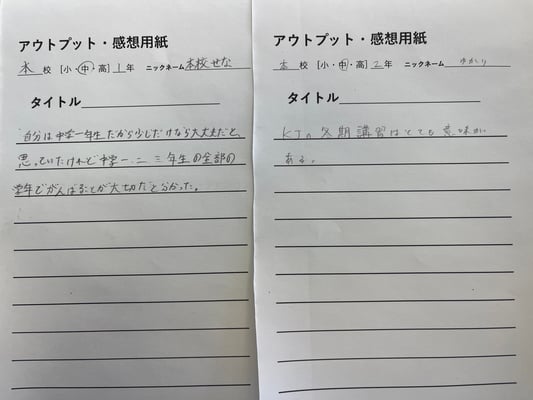 アウトプット・感想用紙
本校 [小・中・高] 1年 ニックネーム 本校せな
タイトル
自分は中学一年生だから少しだけなら大丈夫だと、
思っていたけれど中学一、二 三年生の全部の
学年でがんばることが大切だと分かった。
アウトプット・感想用紙
本校 [小・中・高] 2年 ニックネーム ゆかり
タイトル
KJの冬期講習はとても意味が
ある。